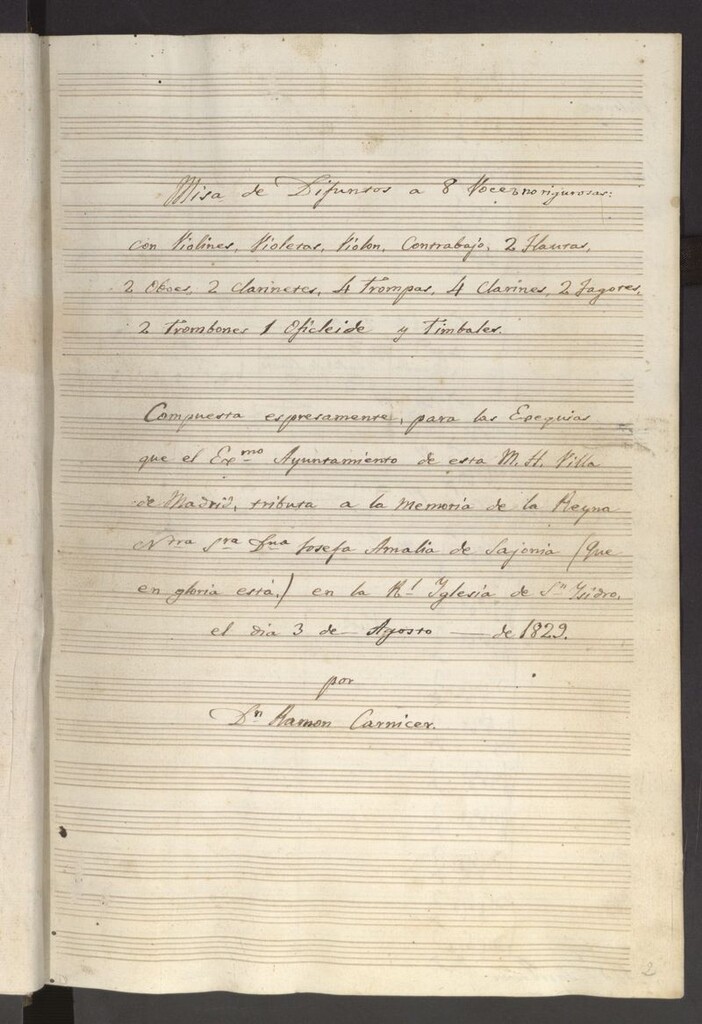 Misa de Difuntos a 8 Voces no rijurosas:
con Violines, Violetas, Violon, Contrabajo, 2 Flautas,
2 Oboes, 2 Clarinetes, 4 Trompas, 4 Clarines, 2 Fagotes,
2 Trombones 1 Oficleide y Timbales.
Compuesta espresamente, para las Exequias
que el Exmo Ayuntamiento de esta M. H. Villa
de Madrid, tributa a la memoria de la Reyna
Ntra Sra Dna Josefa Amalia de Sajonia (que
en gloria está,) en la Rl Yglesia de Sn Ysidro,
el dia 3 de Agosto de 1829.
por
Dn Ramon Carnicer.
2